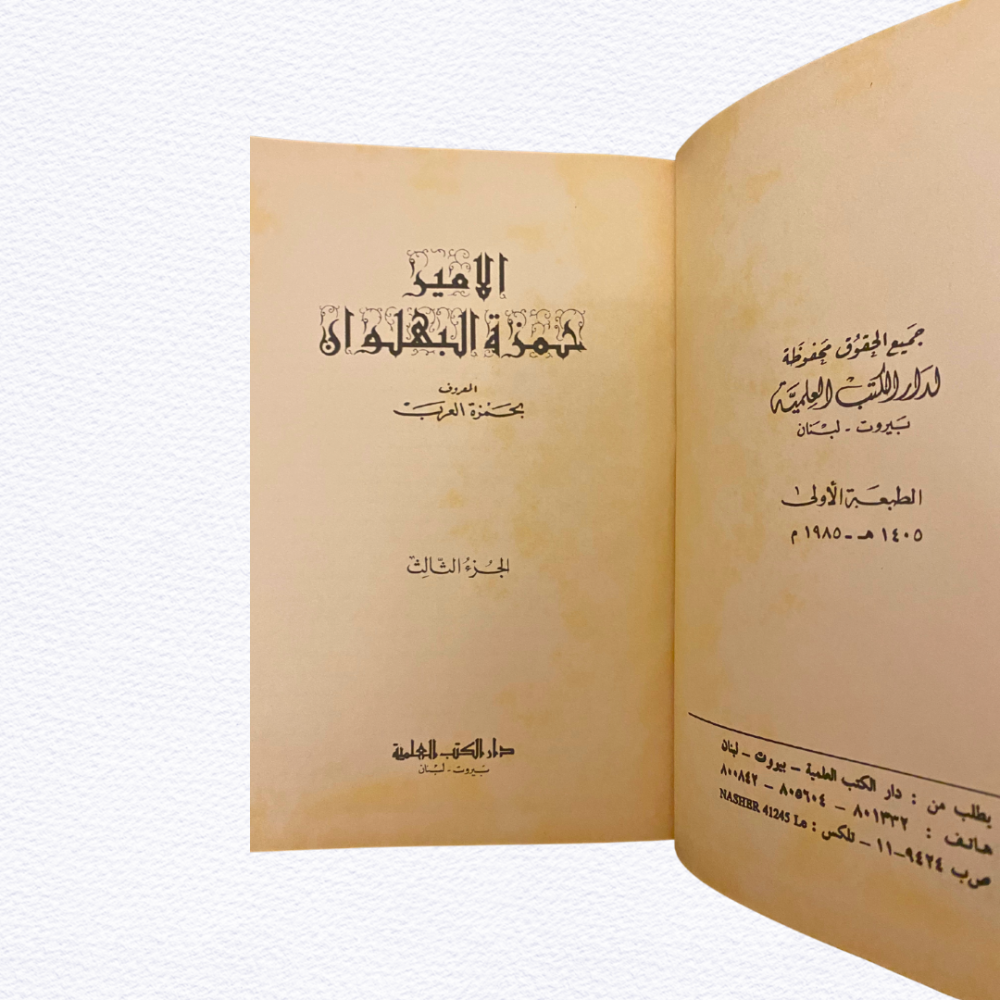 جميع الحقوق محفوظة
لدار الكتب العلمية
بيروت - لبنان
الطبعة الأولى
١٤٠٥ هـ - ١٩٨٥ م
يطلب من : دار الكتب العلمية - بيروت - لبنان
هاتف : ٨٠١٣٣٢ - ٨٠٥٦٠٤ - ٨٠٠٨٤٢
ص ب ٩٤٢٤-١١ - تلكس : NASHER 41245 Le
الامير
حمزة البهلوان
المعروف
بحمزة العرب
الجزء الثالث
دار الكتب العلمية
بيروت - لبنان